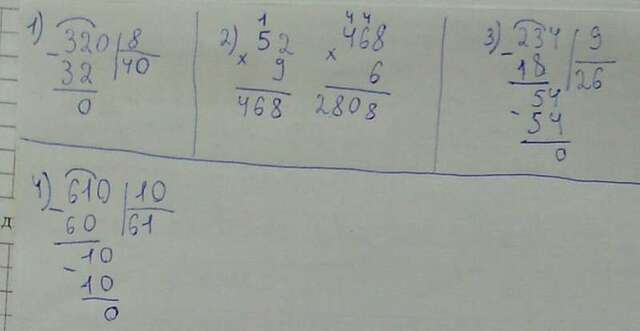 1) 320 8
- 32 40
0
1
2) 52
× 9
468
4 4
468
× 6
2808
3) 234 9
- 18 26
54
- 54
0
4) 610 10
- 60 61
10
- 10
0
д